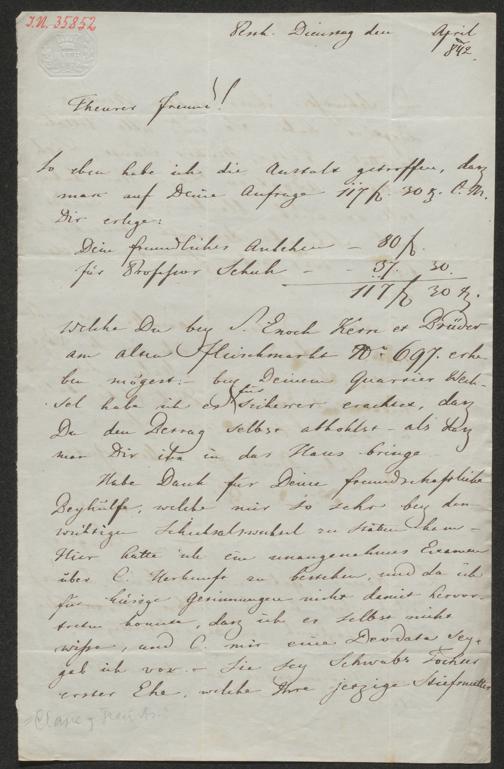 I.N. 35852
Pesth. Dienstag den April
842.
Theurer Freund!
So eben habe ich die Anstalt getroffen, daß
man auf Deine Anfrage 117 f. 30 x. C. M.
Dir erlege:
Dein freundliches Anlehen — 80 f.
für Professor Schuh - - 37. 30.
117 f 30 x.
welche Du bey S. Enoch Kern et Brüder
am alten Fleischmarkt No 697. erhe-
ben mögest:- bey Deinem Quartier Wech-
sel habe ich es für sicherer erachtet, daß
Du den Betrag selbst abholest - als daß
man Dir ihn in das Haus bringe.
Habe Dank für Deine freundschaftliche
Beyhülfe, welche mir so sehr bey den-
wichtigen Schicksalswechsel zu statten kam -
Hier hatte ich ein unangenehmes Examen
über C. Herkunft zu bestehen, und da ich
für hiesige Gesinnungen nicht damit hervor-
treten konnte, daß ich es selbst nicht
wiße, und C. mir eine Deodata sey,
gab ich vor - Sie sey Schwabs Tochter
erster Ehe, welche Ihre jetzige Stiefmutter